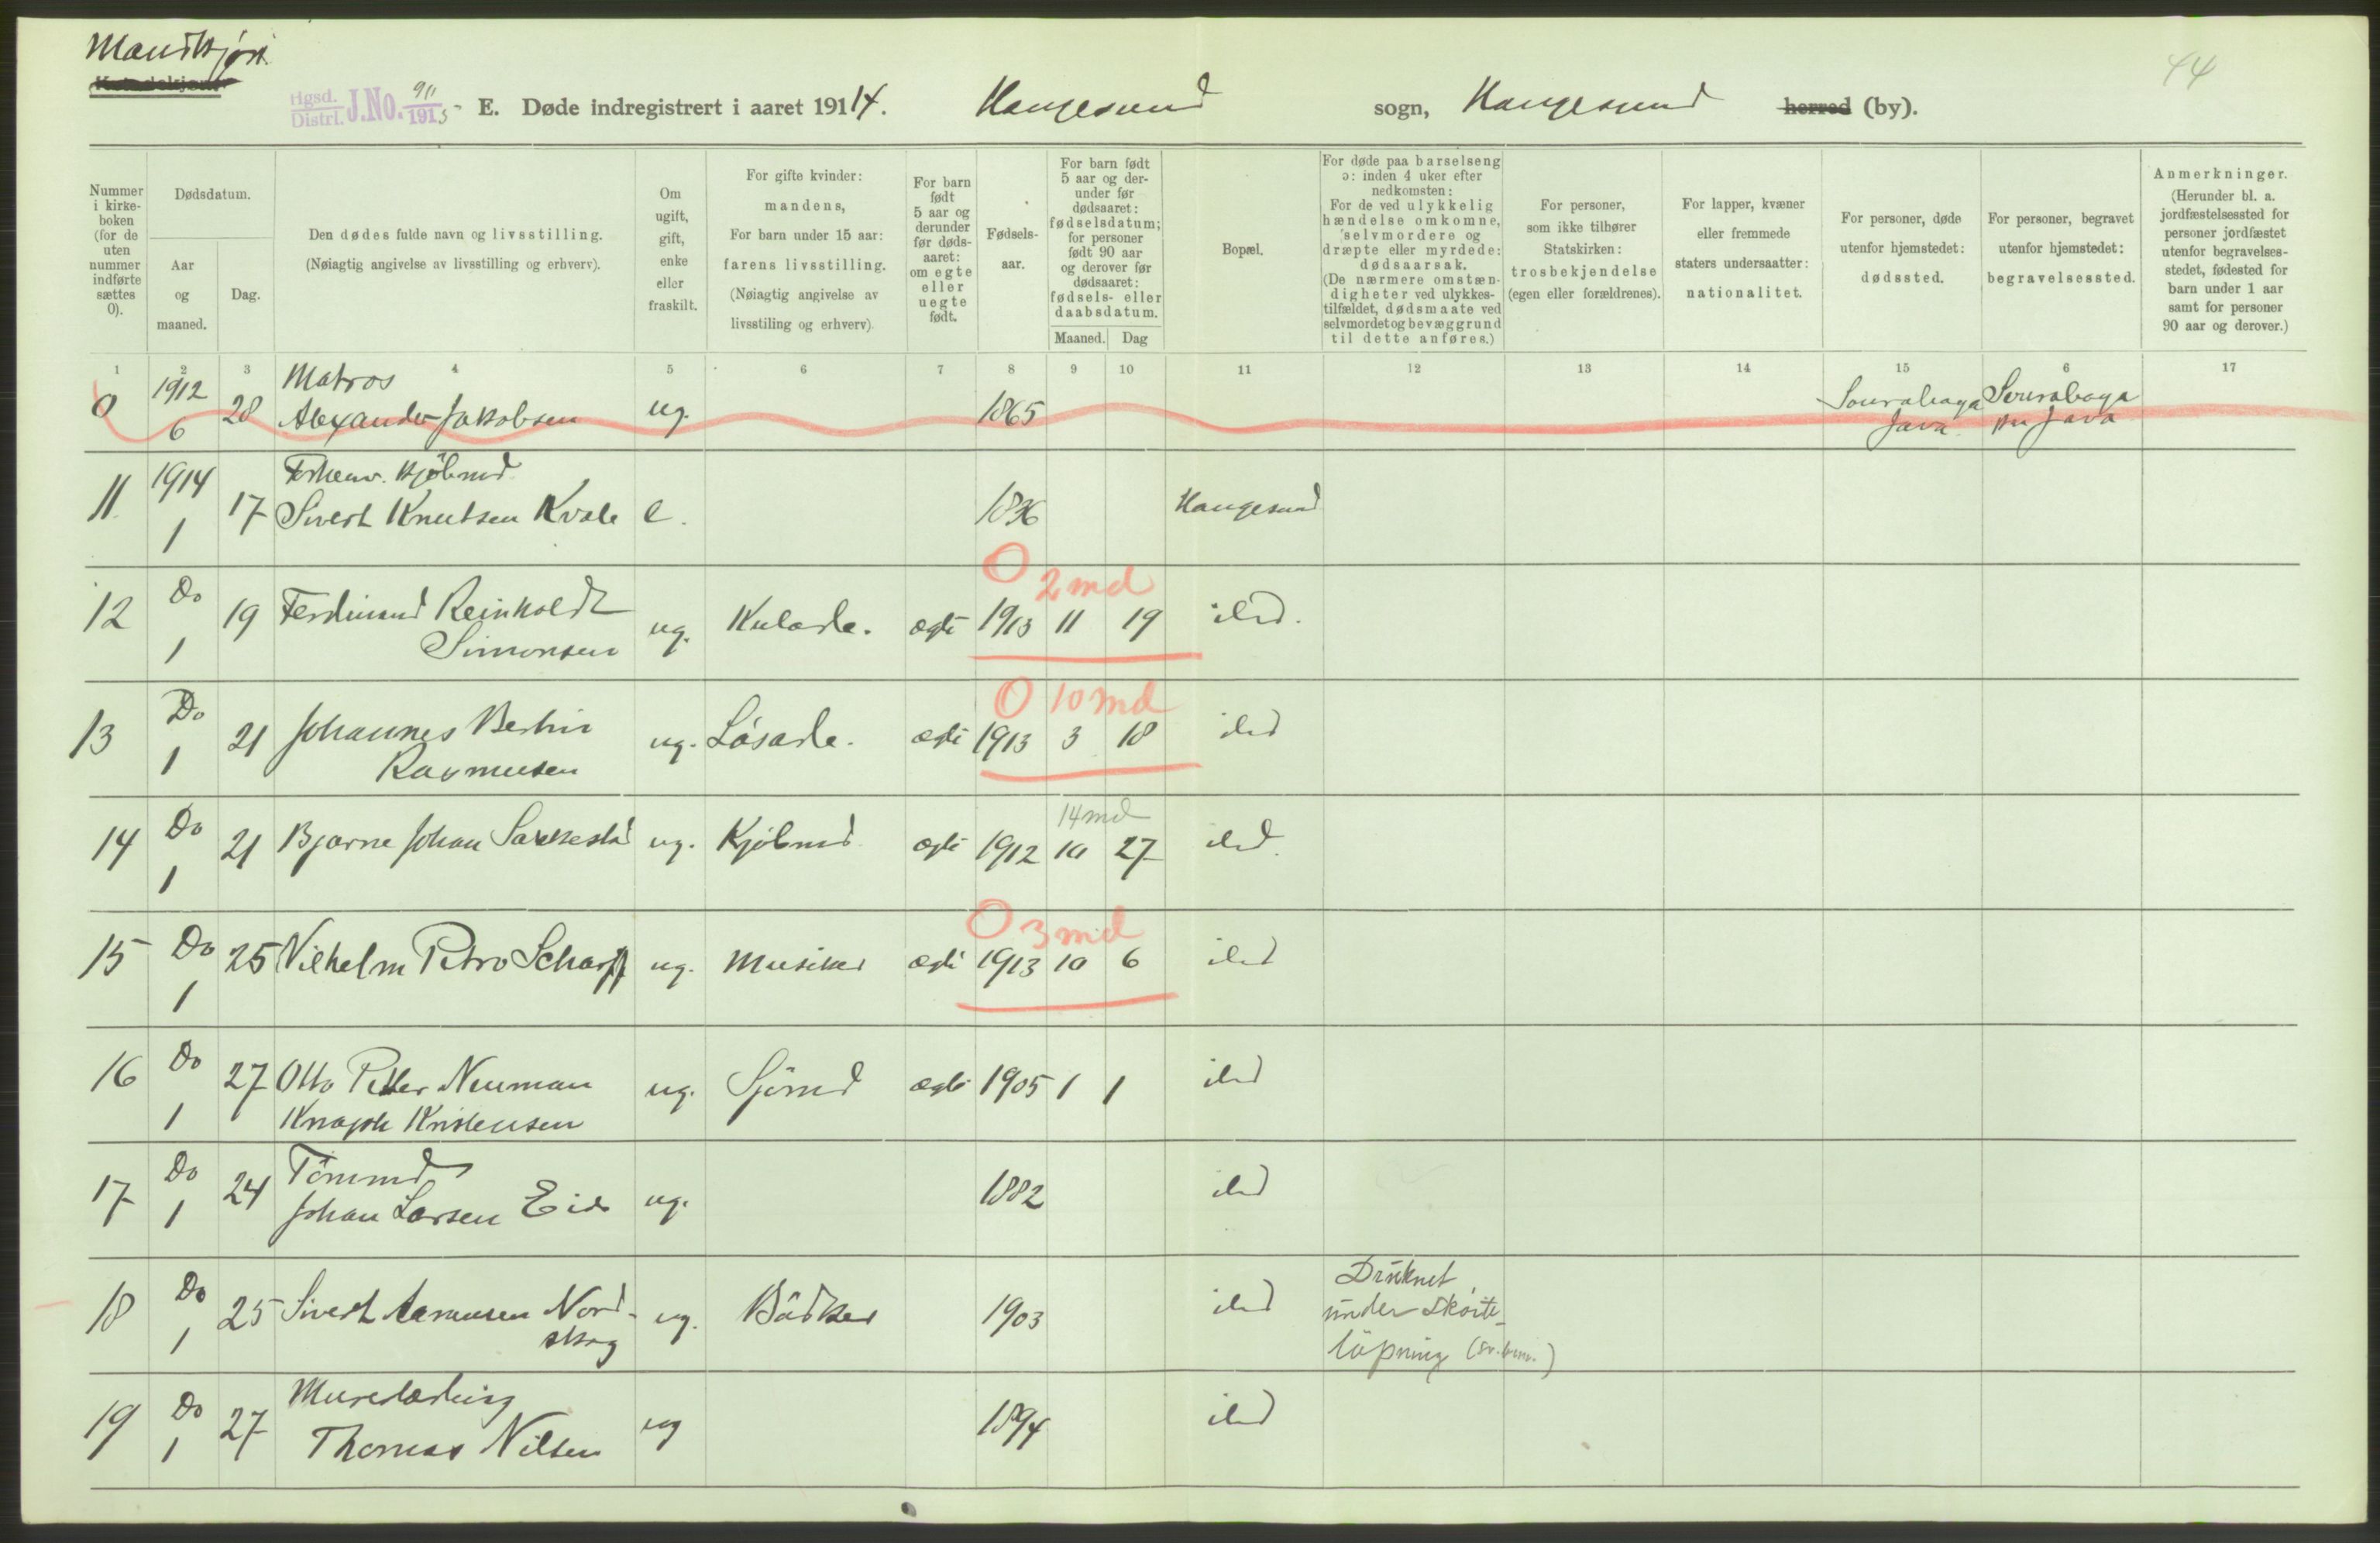 Mandkjøn.
Kvindekjøn.
44
Hgsd. Distrl. J.No. 911/1915 - E. Døde indregistrert i aaret 1914. Haugesund sogn, Haugesund herred (by).
Nummer i kirke-boken (for de uten nummer indførte sættes 0).
Dødsdatum.
Aar og maaned.
Dag.
Den dødes fulde navn og livsstilling.
(Nøiagtig angivelse av livsstilling og erhverv).
Om ugift, gift, enke eller fraskilt.
For gifte kvinder: mandens,
For barn under 15 aar: farens livsstilling.
(Nøiagtig angivelse av livsstiling og erhverv).
For barn født 5 aar og derunder før døds-aaret: om egte eller uegte født.
Fødsels-aar.
For barn født 5 aar og der-under før dødsaaret: fødselsdatum; for personer født 90 aar og derover før dødsaaret: fødsels- eller daabsdatum.
Maaned. Dag
Bopæl.
For døde paa barselseng ɔ: inden 4 uker efter nedkomsten:
For de ved ulykkelig hændelse omkomne, selvmordere og dræpte eller myrdede: dødsaarsak.
(De nærmere omstæn-digheter ved ulykkes-tilfældet, dødsmaate ved selvmordet og bevæggrund til dette anføres.)
For personer, som ikke tilhører Statskirken: trosbekjendelse (egen eller forældrenes).
For lapper, kvæner eller fremmede staters undersaatter: nationalitet.
For personer, døde utenfor hjemstedet: dødssted.
For personer, begravet utenfor hjemstedet: begravelsessted.
Anmerkninger.
(Herunder bl. a. jordfæstelsessted for personer jordfæstet utenfor begravelses-stedet, fødested for barn under 1 aar samt for personer 90 aar og derover.)
1 2 3 4 5 6 7 8 9 10 11 12 13 14 15 6 17
0 1912 6 28 Matros Alexander Jakobsen ug. 1865 Sourabaga Java Sourabaga Java
11 1914 1 17 Kjöbmd Sivert Knutsen Kvale e. 1836 Haugesund
12 Do 1 19 Ferdinand Reinholdt Simonsen ug. ægte 1913 11 19 ild.
0 2 md
13 Do 1 21 Johannes Bertin Rasmusen ug. ægte 1913 3 18 ild
0 10 md
14 Do 1 21 Bjarne Johan ug. Kjöbmd ægte 1912 10 27 ild.
14 md
15 Do 1 25 Vilhelm Petro Scharff ug. Musiker ægte 1913 10 6 ild
0 3 md
16 Do 1 27 Otto Petter Neuman Knaph Kristensen ug. Sjömd ægte 1905 1 1 ild
17 Do 1 24 Tömmd Johan Larsen Eide ug. 1882 ild
18 Do 1 25 Sivert Aamusen Nord-skog ug. Bödker 1903 ild Druknet under Skøite-løpning
19 Do 1 27 Murerlærling Thomas Nilsen ug 1894 ild